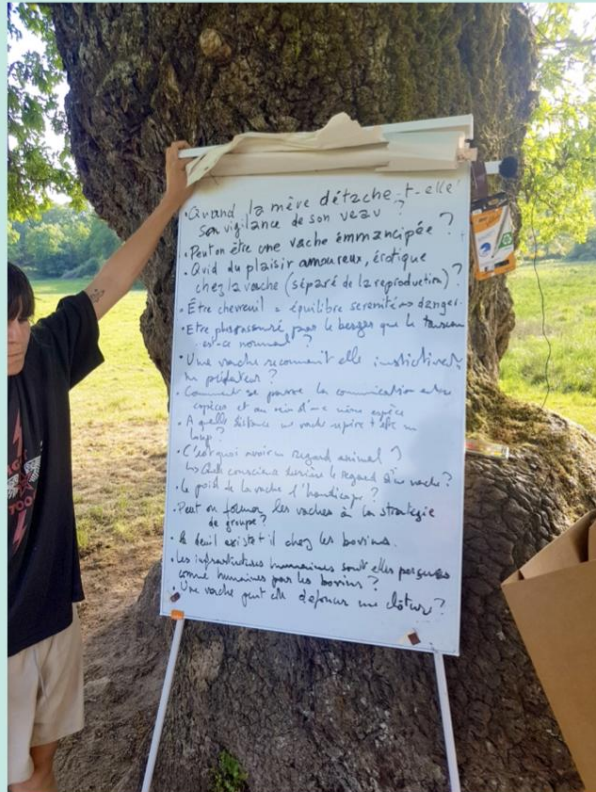 • Quand la mère détache-t-elle
son vigilance de son veau ?
• Peut on être une vache émmancipée ?
• Quid du plaisir amoureux, érotique
chez la vache (séparé de la reproduction) ?
• Être chevreuil = équilibre serenité danger.
• Etre par le berger que le
est-ce normal ?
• Une vache reconnait elle instictivement
un prédateur ?
• Comment se passe la communication entre
espèces et au sein d'une même espèce
• A quelle distance une vache repère t-elle un
loup ?
• C'est quoi avoir un regard animal ?
conscience derrière le regard d'une vache ?
• le poid de la vache l'handicape ?
• Peut on former les vaches à la stratégie
de groupe ?
• le deuil existe t-il chez les bovins.
• Les infrastructures humaines sont elles perçues
comme humaines par les bovins ?
• Une vache peut elle défoncer une clôture ?
TOO